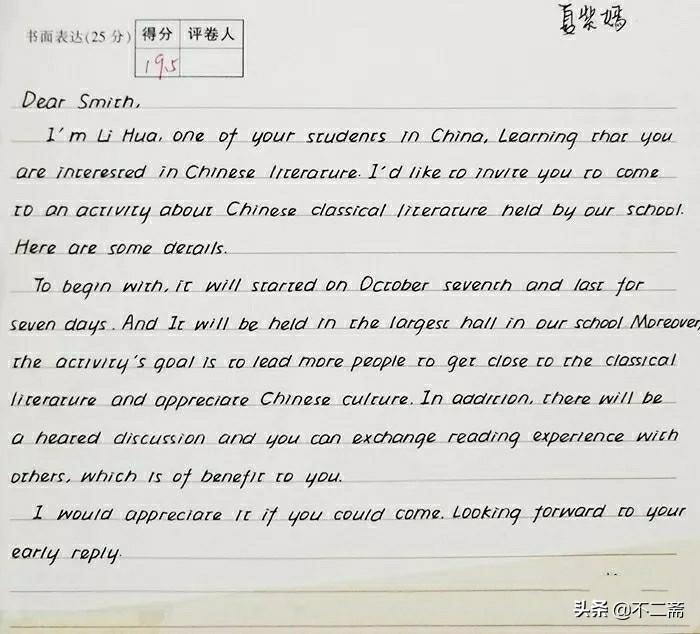 夏紫嫣
书面表达(25分) 得分 评卷人
19.5
Dear Smith,
I'm Li Hua, one of your students in China, Learning that you
are interested in Chinese literature. I'd like to invite you to come
to an activity about Chinese classical literature held by our school.
Here are some details.
To begin with, it will started on October seventh and last for
seven days. And It will be held in the largest hall in our school Moreover,
the activity's goal is to lead more people to get close to the classical
literature and appreciate Chinese culture. In addition, there will be
a heated discussion and you can exchange reading experience with
others, which is of benefit to you.
I would appreciate it if you could come. Looking forward to your
early reply.
头条 @不二斋